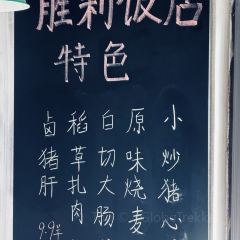 胜利饭店
特色
小炒猪心
原味烧麦
白切大肠
稻草扎肉
卤猪肝
9.9/样